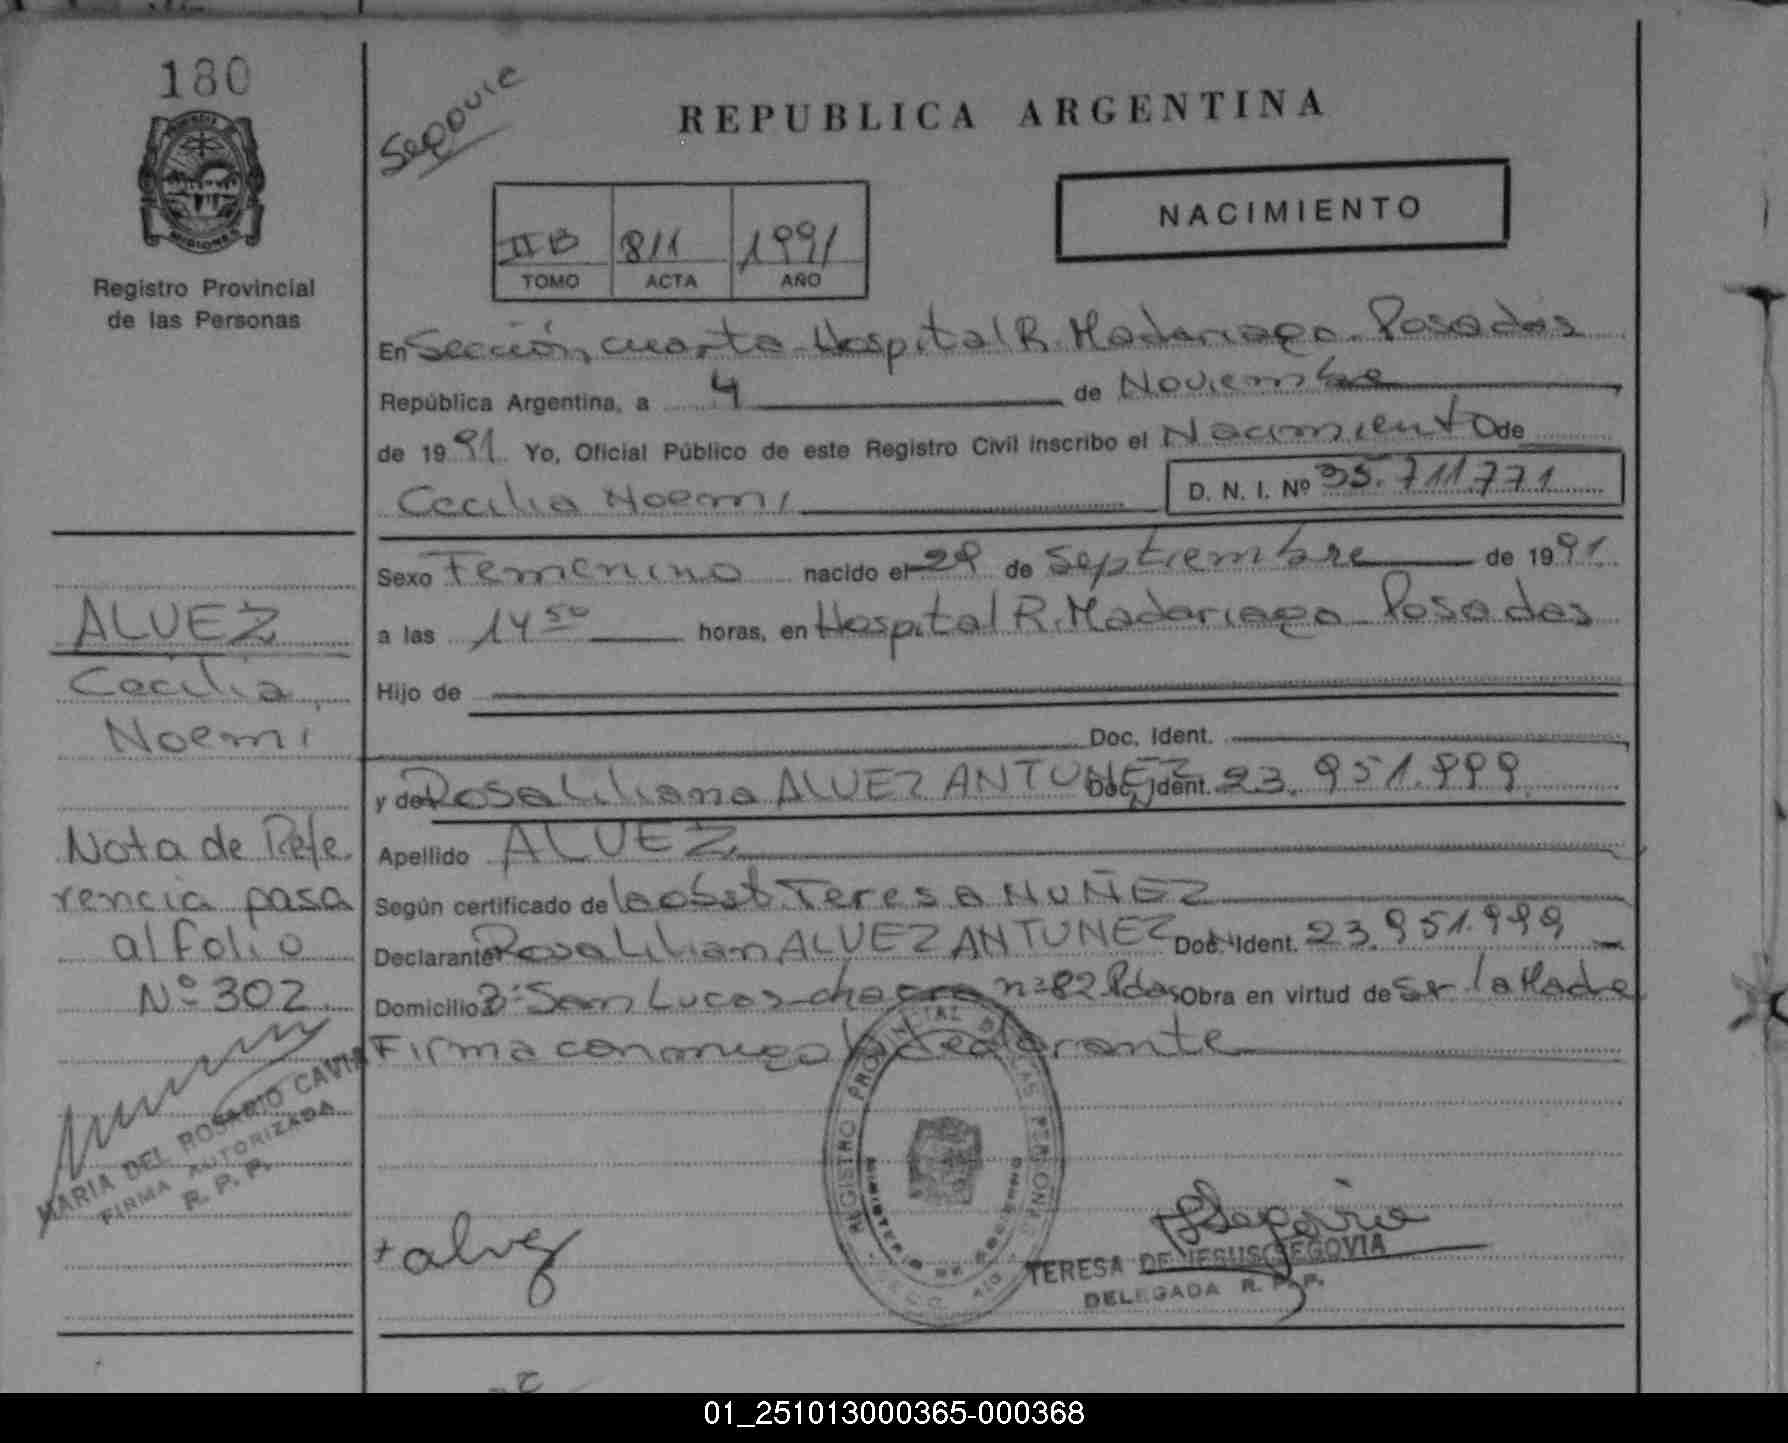 180
REPUBLICA ARGENTINA
NACIMIENTO
II B 811 1991
TOMO ACTA AÑO
MISIONES
Registro Provincial
de las Personas
En Sección cuarta Hospital R. Madariaga Posadas
República Argentina, a 4 de Noviembre
de 1991. Yo, Oficial Público de este Registro Civil inscribo el Nacimiento de
Cecilia Noemi D. N. I. Nº 35.711.771
Sexo Femenino nacido el 29 de septiembre de 1991.
a las 14 50 horas, en Hospital R. Madariaga Posadas
Hijo de
Doc. Ident.
y de Rosa Liliana ALVEZ ANTUNEZ Doc. Ident. 23.951.999
Apellido ALVEZ
Según certificado de la obst Teresa NUÑEZ
Declarante Rosa Lilian ALVEZ ANTUNEZ Doc. Ident. 23.951.999
Domicilio Bº San Lucas chacra nº 82 Pdas Obra en virtud de Sr la Madre
Firma conmigo la declarante
ALVEZ
Cecilia
Noemi
Nota de Refe
rencia pasa
al folio
Nº 302
MARIA DEL ROSARIO CAVIA
FIRMA AUTORIZADA
R. P. P.
+ alvez
REGISTRO PROVINCIAL DE LAS PERSONAS
MINISTERIO DE GOBIERNO
Segovia
TERESA DE JESUS SEGOVIA
DELEGADA R. P. P.
01_251013000365-000368